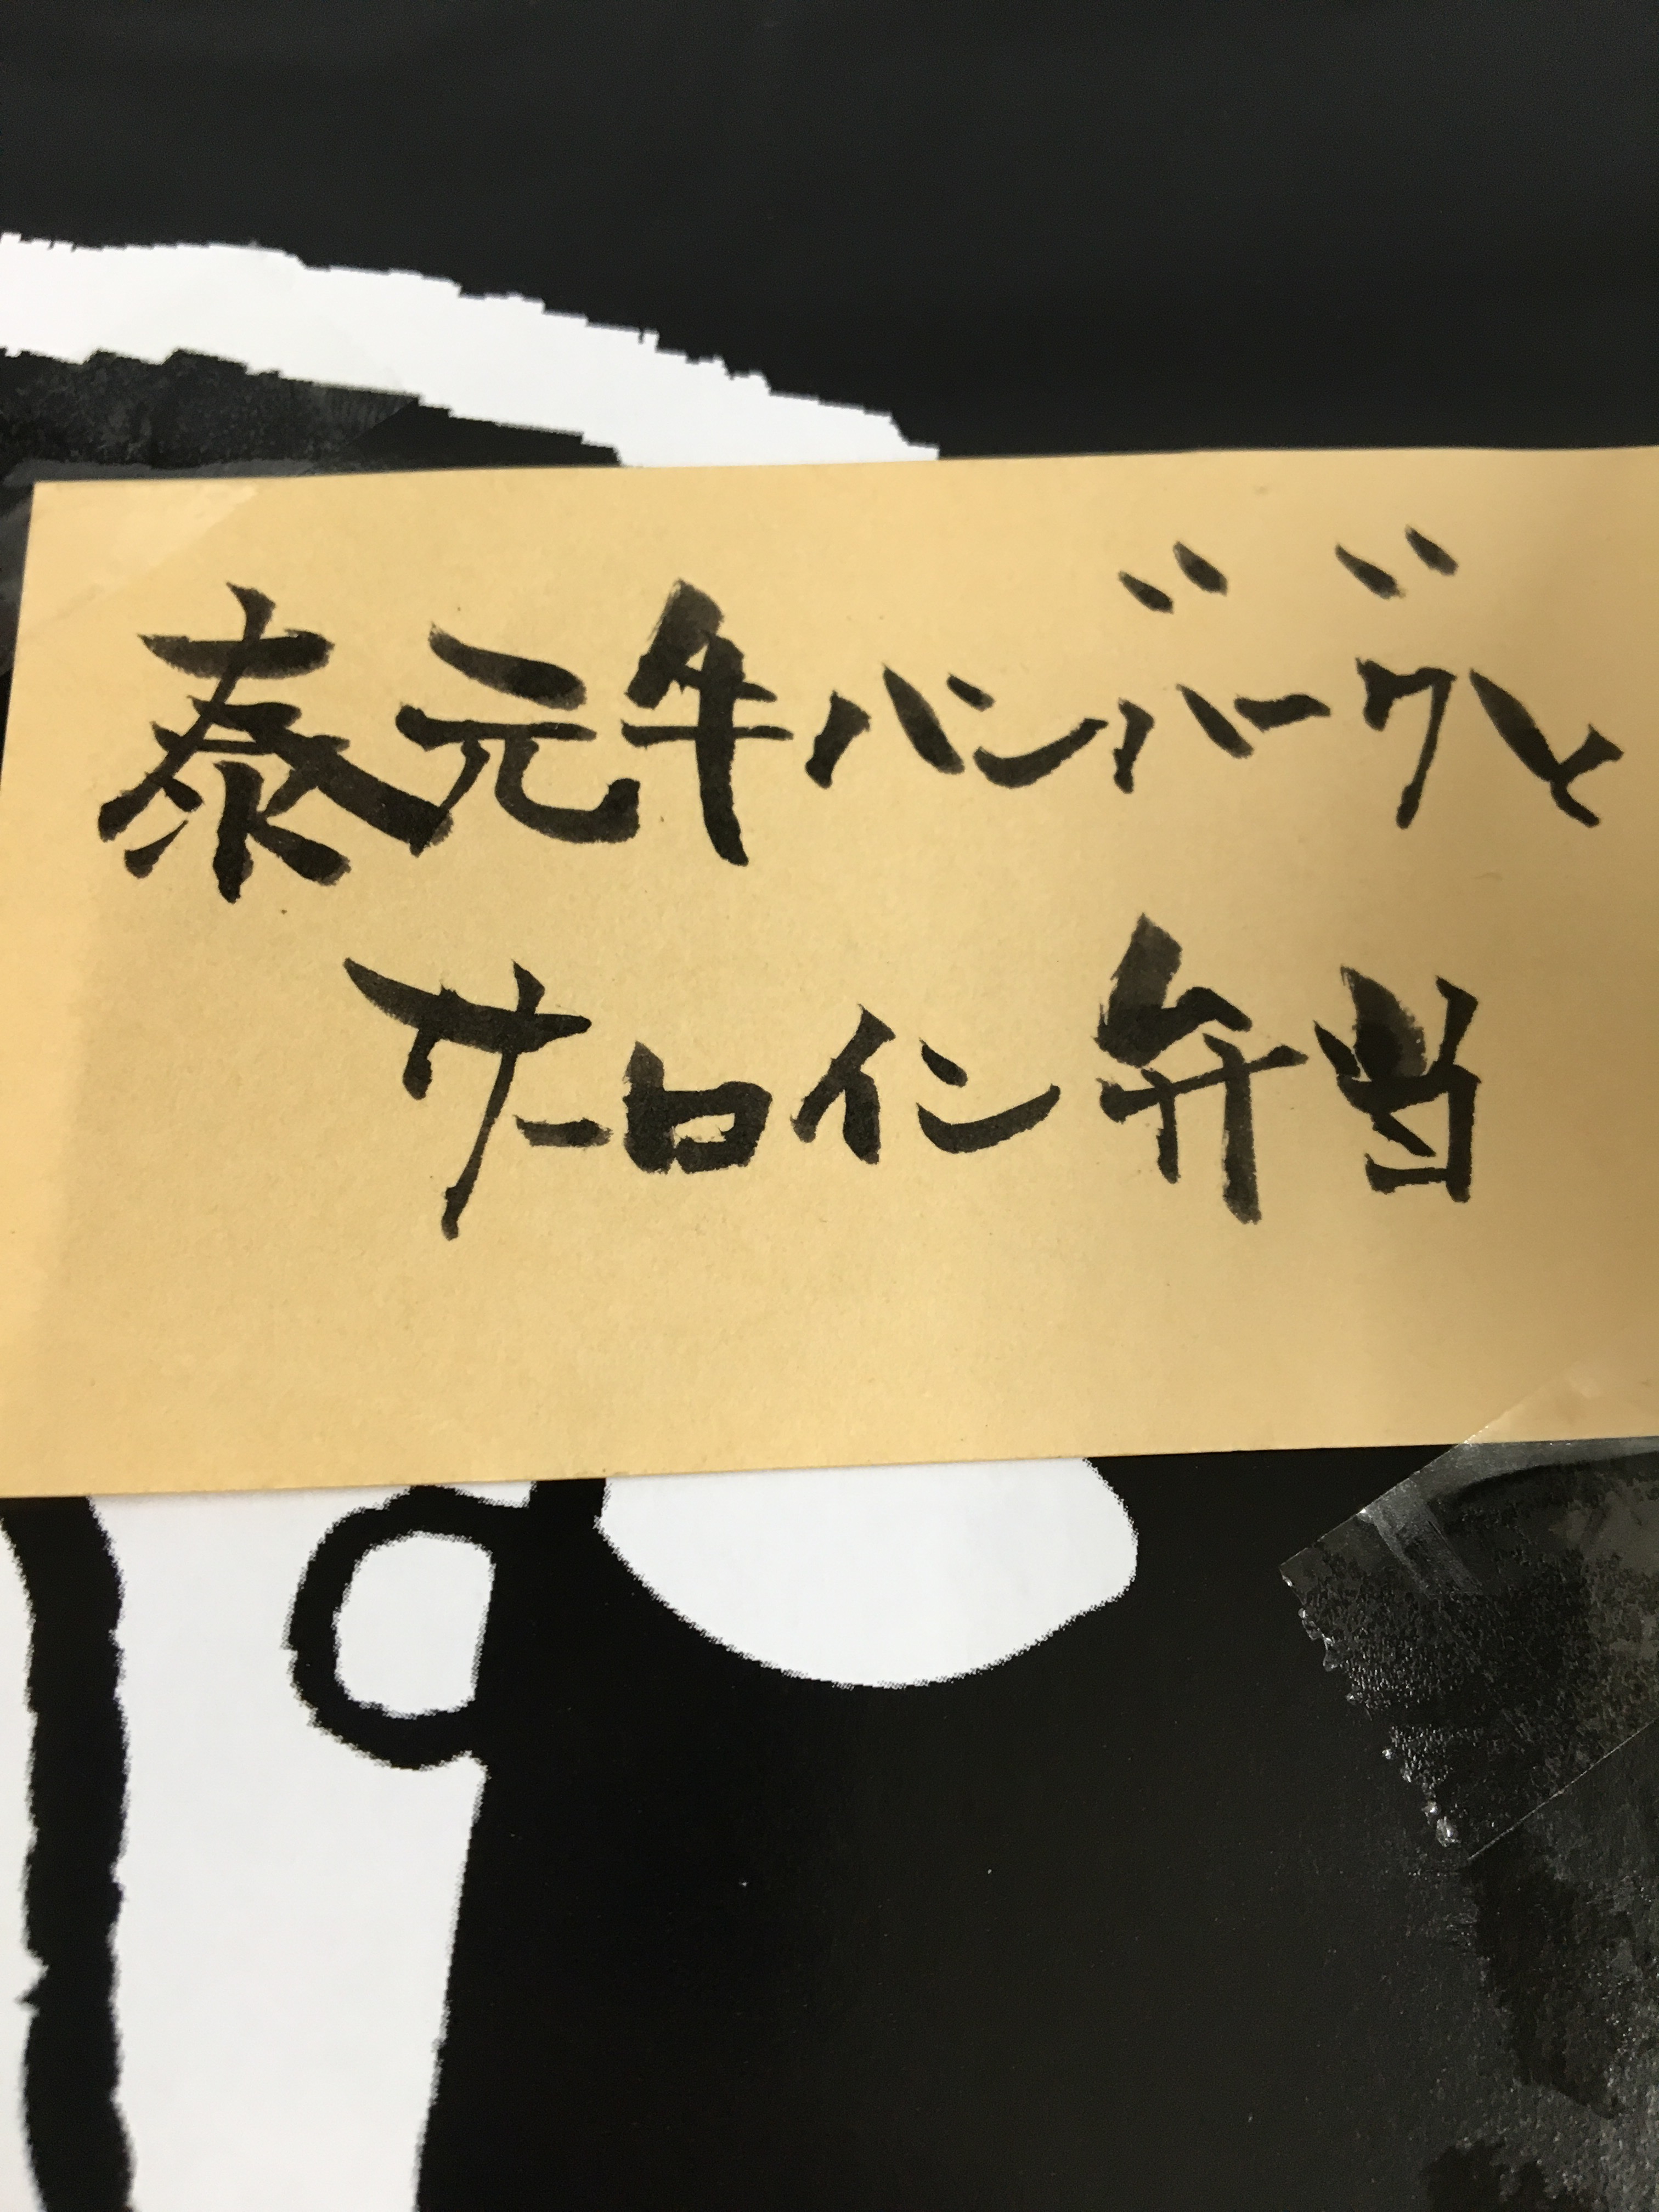 泰元牛ハンバーグと
サーロイン弁当